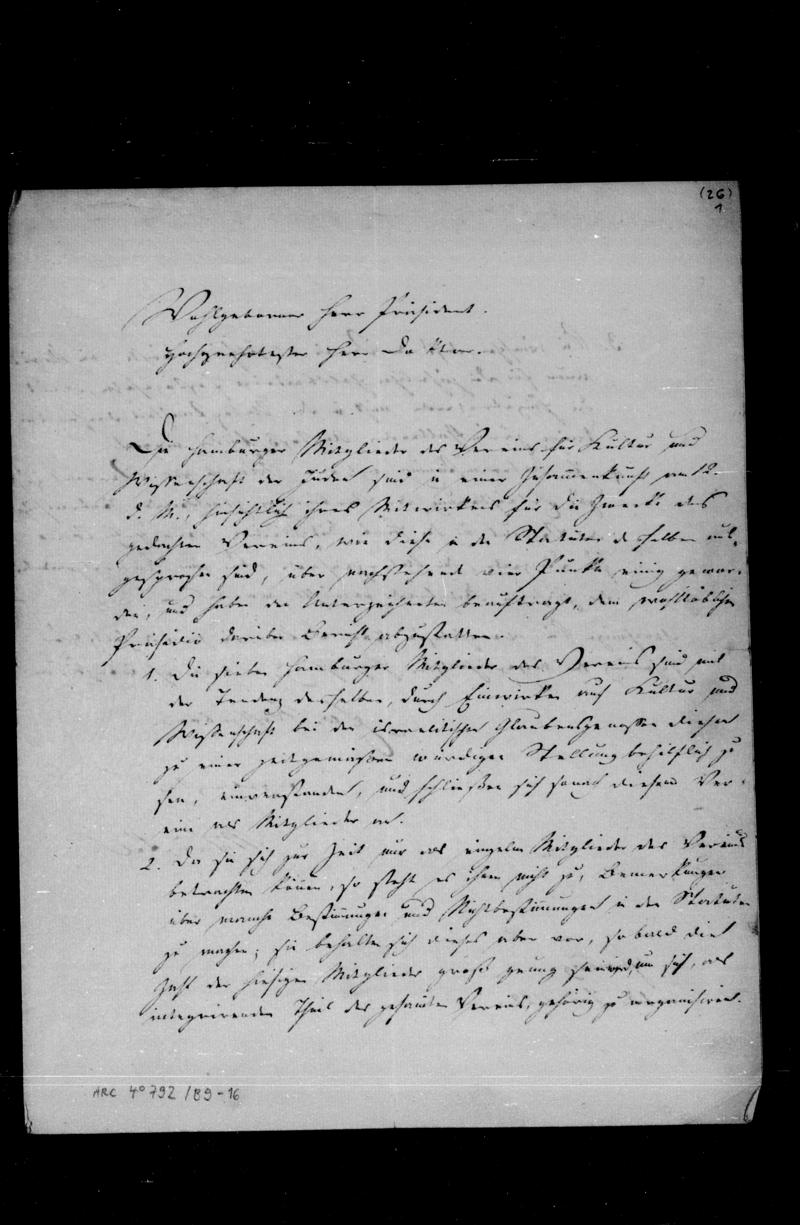 (26)
1
Wohlgeborner Herr Präsident.
Hochgeehrtester Herr Doktor.
Die Hamburger Mitglieder des Vereins für Kultur und
Wissenschaft der Juden sind in einer Zusammenkunft am 12.
d. M., hinsichtlich ihres Mitwirkens für die Zwecke des
gedachten Vereins, wie diese in den Statuten desselben aus-
gesprochen sind, über nachstehende vier Punkte einig gewor-
den, und haben den Unterzeichneten beauftragt, dem wohllöblichen
Präsidio darüber Bericht abzustatten.
1. Die sieben Hamburger Mitglieder des Vereins sind mit
der Tendenz desselben, durch Einwirken auf Kultur und
Wissenschaft bei den israelitischen Glaubensgenossen diesen
zu einer zeitgemäßen würdigen Stellung behilflich zu
sein, einverstanden, und schließen sich sonach diesem Ver-
eine als Mitglieder an.
2. Da sie sich zur Zeit nur als einzelne Mitglieder des Vereins
betrachten können, so steht es ihnen nicht zu, Bemerkungen
über manche Bestimmungen und Nichtbestimmungen in den Statuten
zu machen; sie behalten sich dieses aber vor, so bald die
Zahl der hiesigen Mitglieder groß genug sein wird, um sich, als
integrirenden Theil des gesamten Vereins, gehörig zu organisiren.
ARC 4° 792 / B9-16